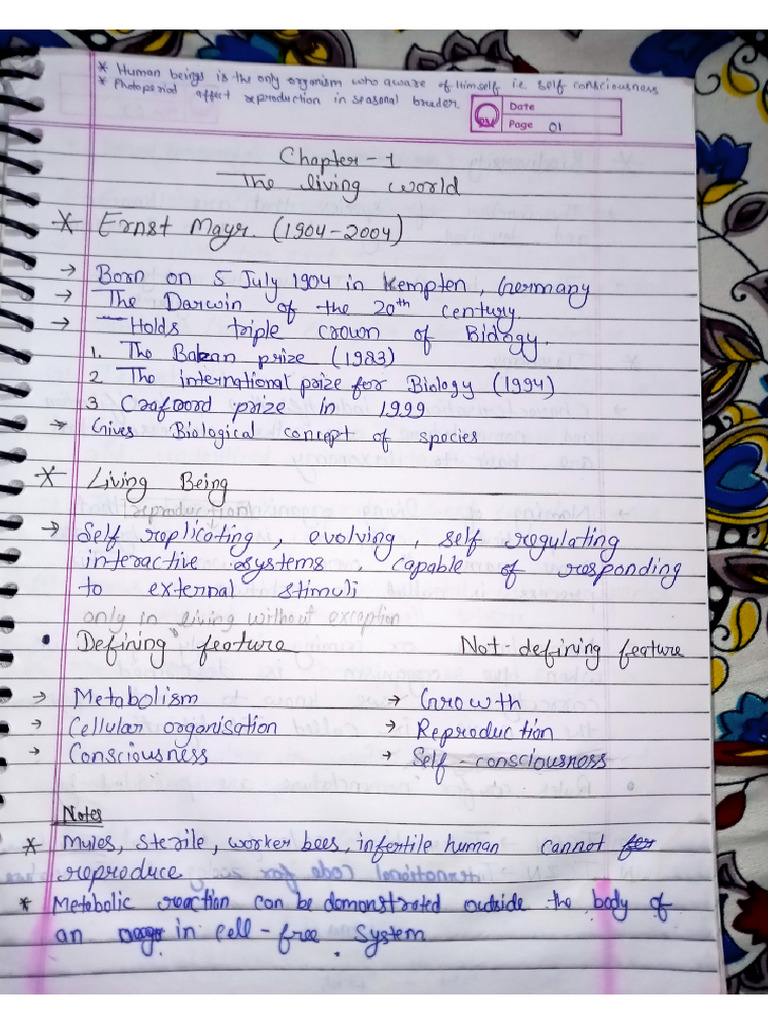 * Human beings is the only organism who aware of Himself i.e. self consciousness
* Photoperiod affect reproduction in seasonal breeder.
Date
Page 01
Chapter-1
The living world
* Ernst Mayr. (1904-2004)
→ Born on 5 July 1904 in Kempten, Germany
→ The Darwin of the 20th century.
→ Holds triple crown of Biology.
1. The Balzan prize (1983)
2 The international prize for Biology (1994)
3 Crafoord prize in 1999
→ Gives Biological concept of species
* Living Being
reproduction
→ Self replicating, evolving, self regulating
interactive systems, capable of responding
to external stimuli
only in living without exception
• Defining feature Not-defining feature
→ Metabolism → Growth
→ Cellular organisation → Reproduction
→ Consciousness → Self-consciousness
Notes
* Mules, sterile, worker bees, infertile human cannot
reproduce
* Metabolic reaction can be demonstrated outside the body of
an in cell-free system